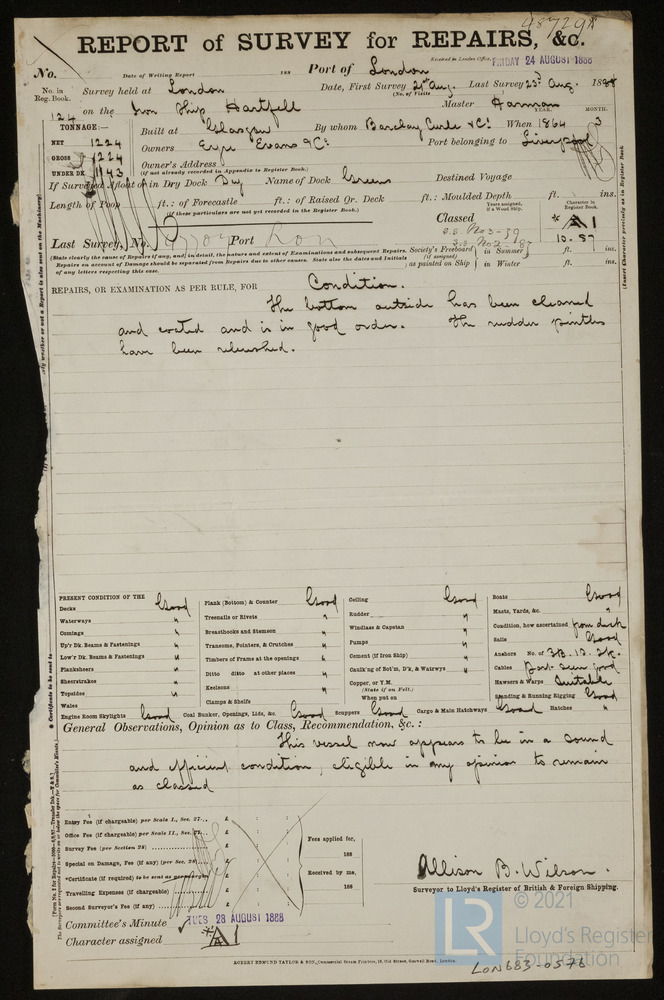 48729
REPORT of SURVEY for REPAIRS, &c.
Received in London Office, FRIDAY 24 AUGUST 1888
No. Date of Writing Report 188 Port of London
No. in Reg. Book. Survey held at London Date, First Survey 21st Aug. Last Survey 23rd Aug. 1888
(No. of Visits
124 on the Iron Ship Hartfell Master Harman
TONNAGE:— YEAR. MONTH.
NET 1224 Built at Glasgow By whom Barclay Curle & Co. When 1864 3
GROSS 1224 Owners Eyre Evans & Co Port belonging to Liverpool
UNDER DK 1143 Owner's Address
(if not already recorded in Appendix to Register Book.)
If Surveyed Afloat or in Dry Dock Dry Name of Dock Greens Destined Voyage
Length of Poop ft.: of Forecastle ft.: of Raised Qr. Deck ft.: Moulded Depth ft. ins.
(If these particulars are not yet recorded in the Register Book.)
Years assigned, if a Wood Ship. Character in Register Book.
Classed * A 1
Last Survey, No. Port Lon 10.87
(State clearly the cause of Repairs if any, and, in detail, the nature and extent of Examinations and subsequent Repairs.
Repairs on account of Damage should be separated from Repairs due to other causes. State also the dates and Initials
of any letters respecting this case.
Society's Freeboard (if assigned) as painted on Ship in Summer ft. ins.
in Winter ft. ins.
REPAIRS, OR EXAMINATION AS PER RULE, FOR Condition.
The bottom outside has been cleaned
and coated and is in good order. The rudder pintles
have been rebushed.
PRESENT CONDITION OF THE
Decks Good
Waterways "
Comings "
Up'r Dk. Beams & Fastenings "
Low'r Dk. Beams & Fastenings "
Planksheers "
Sheerstrakes "
Topsides "
Wales
Engine Room Skylights Good
Plank (Bottom) & Counter Good
Treenails or Rivets "
Breasthooks and Stemson "
Transoms, Pointers, & Crutches "
Timbers of Frame at the openings "
Ditto ditto at other places "
Keelsons "
Clamps & Shelfs
Coal Bunker, Openings, Lids, &c. Good
Ceiling Good
Rudder "
Windlass & Capstan "
Pumps "
Cement (if Iron Ship) "
Caulk'ng of Bot'm, D'k, & Watrwys "
Copper, or Y.M.
(State if on Felt.)
When put on
Scuppers Good Cargo & Main Hatchways Good
Boats Good
Masts, Yards, &c. "
Condition, how ascertained from deck
Sails Good
Anchors No. of 3B. 1S. 2K.
Cables Part seen good
Hawsers & Warps Suitable
Standing & Running Rigging Good
Hatches "
General Observations, Opinion as to Class, Recommendation, &c.:
This vessel now appears to be in a sound
and efficient condition, eligible in my opinion to remain
as classed
Entry Fee (if chargeable) per Scale I., Sec. 27... £ : :
Office Fee (if chargeable) per Scale II., Sec. 27... £ : :
Survey Fee (per Section 28) £ : :
Special on Damage, Fee (if any) (per Sec. 28) £ : :
*Certificate (if required) to be sent as per margin £ : :
Travelling Expenses (if chargeable) £ : :
Second Surveyor's Fee (if any) £ : :
Fees applied for,
188
Received by me,
188
Allison B. Wilson.
Surveyor to Lloyd's Register of British & Foreign Shipping.
Committee's Minute TUES 28 AUGUST 1888
Character assigned * A 1
ROBERT EDMUND TAYLOR & SON, Commercial Steam Printers, 19, Old Street, Goswell Road, London.
(Insert Character precisely as in Register Book
* Certificate to be sent to
LR
© 2021
Lloyd's Register
Foundation
LON683-0576